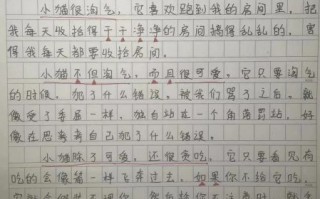 小猫很淘气，它喜欢跑到我的房间里，把
我每天收拾得干干净净的房间搞得乱乱的。害
得我每天都要收拾房间。
小猫不但淘气，而且很可爱。它只要淘气
的时候，犯了什么错误，被我们骂了之后，就
像受了委屈一样，独自站在一个角落罚站，好
像在思考自己犯了什么错误。
小猫除了可爱，还很贪吃。它只要看见有
吃的会像箭一样飞奔过去，如果你不给它吃，